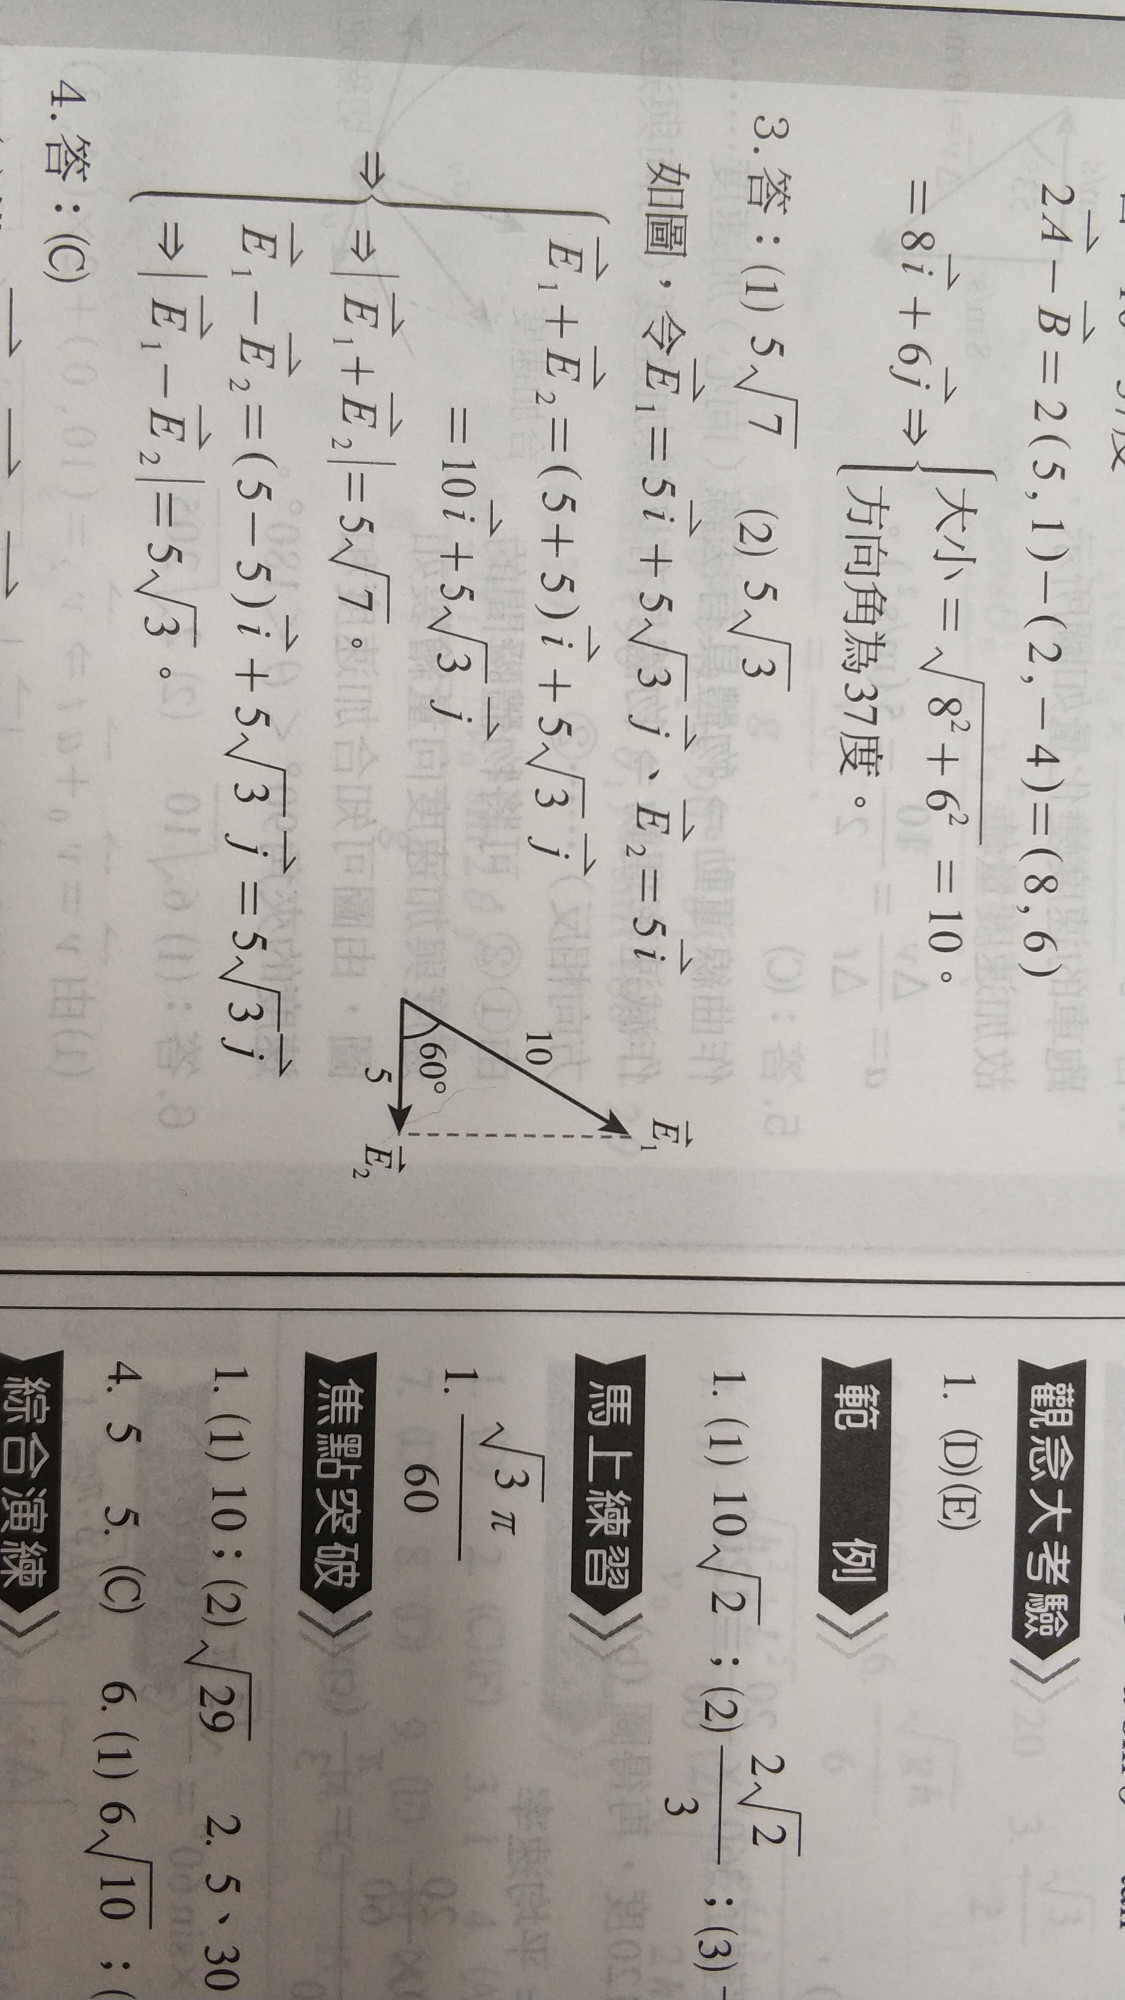 2A⃗ − B⃗ = 2(5, 1) − (2, −4) = (8, 6)
= 8i⃗ + 6j⃗ ⇒ { 大小 = √(8² + 6²) = 10。
方向角為37度。
3. 答：(1) 5√7 (2) 5√3
如圖，令E⃗₁ = 5i⃗ + 5√3 j⃗、E⃗₂ = 5i⃗
E⃗₁ + E⃗₂ = (5 + 5)i⃗ + 5√3 j⃗
= 10i⃗ + 5√3 j⃗
⇒ { ⇒ |E⃗₁ + E⃗₂| = 5√7。
E⃗₁ − E⃗₂ = (5 − 5)i⃗ + 5√3 j⃗ = 5√3 j⃗
⇒ |E⃗₁ − E⃗₂| = 5√3。
E⃗₁
10
60°
5
E⃗₂
4. 答：(C)
觀念大考驗
1. (D)(E)
範例
1. (1) 10√2 ; (2) 2√2/3 ; (3)
馬上練習
1. √3π/60
焦點突破
1. (1) 10 ; (2) √29 2. 5、30
4. 5 5. (C) 6. (1) 6√10 ; (
綜合演練